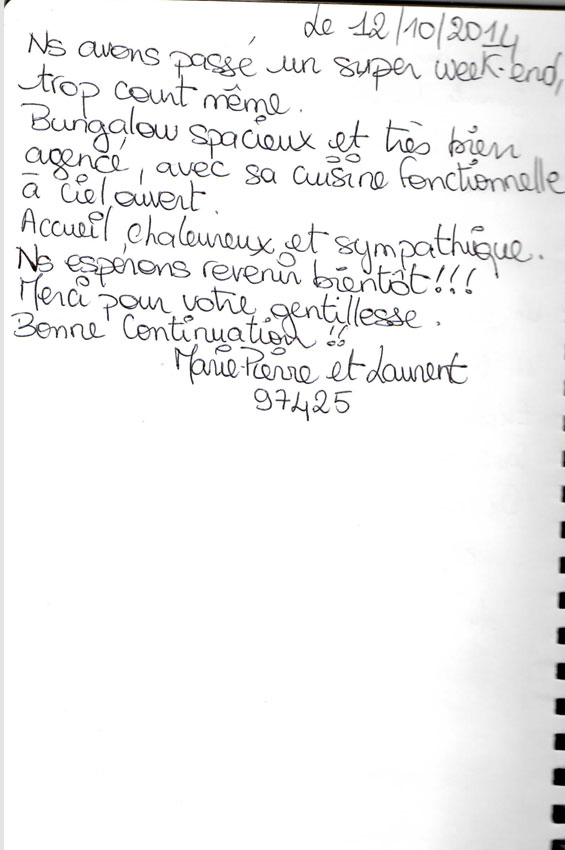 Le 12/10/2014
Ns avons passé un super week-end,
trop court même.
Bungalow spacieux et très bien
agencé, avec sa cuisine fonctionnelle
à ciel ouvert.
Accueil chaleureux et sympathique.
Ns espérons revenir bientôt!!!
Merci pour votre gentillesse.
Bonne Continuation !!
Marie-Pierre et Laurent
97425